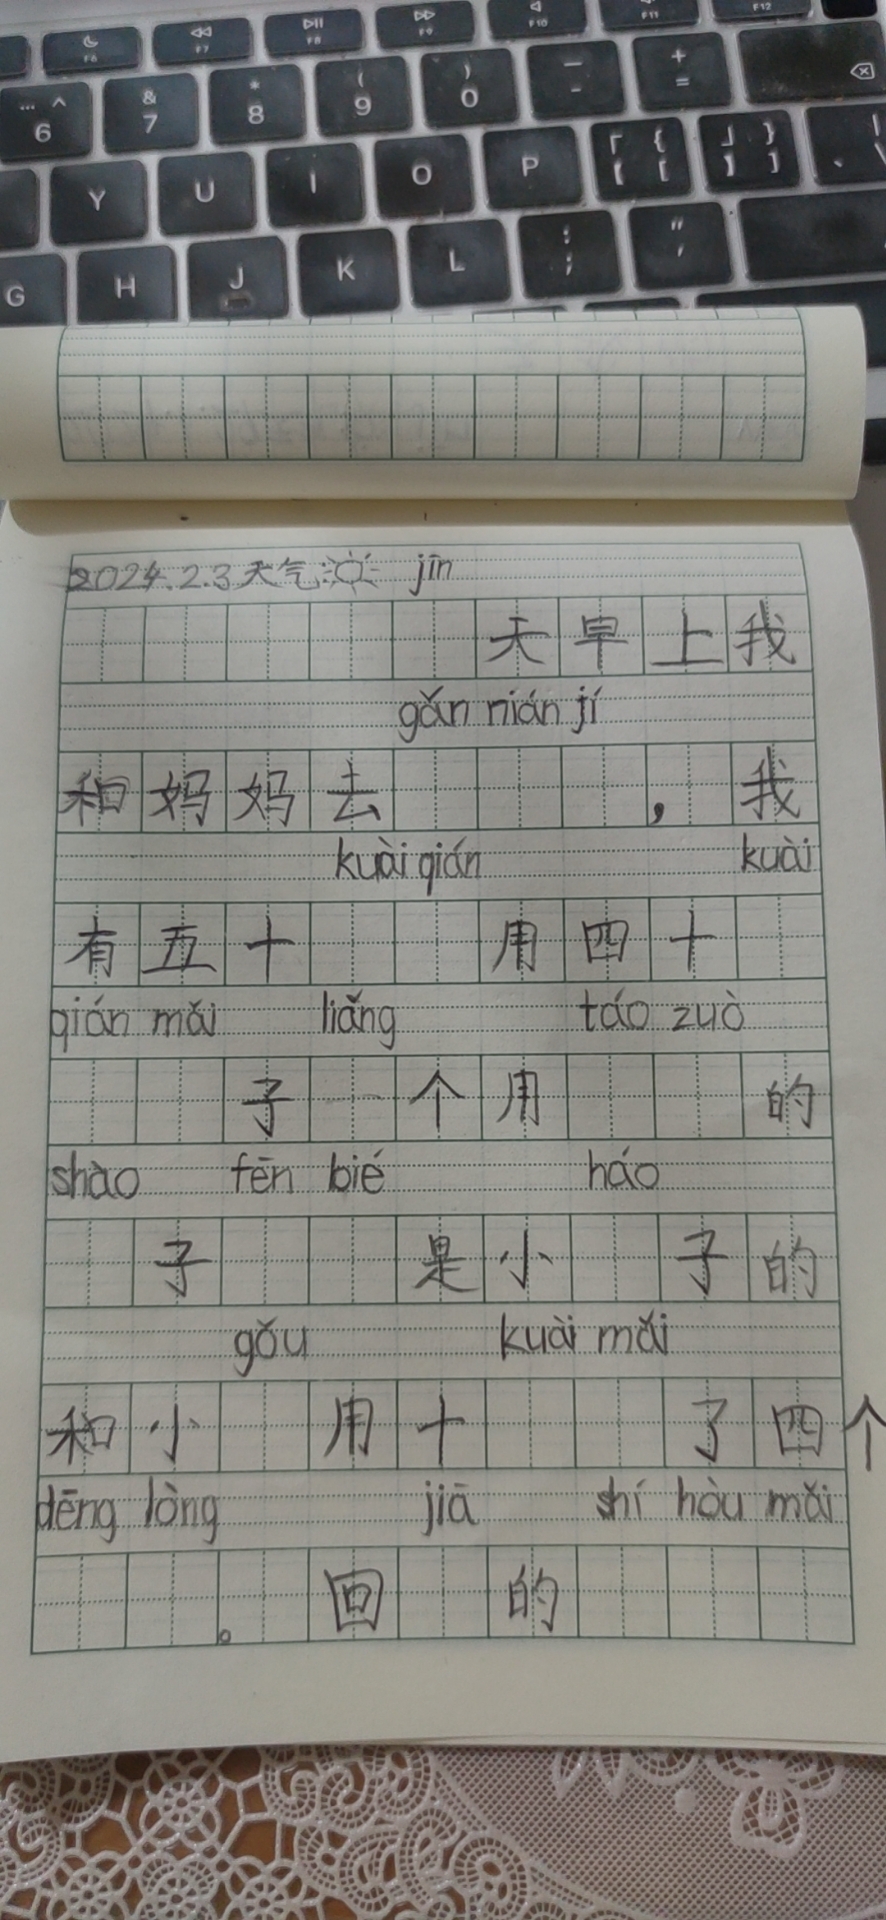 F6 F7 F8 F9 F10 F11 F12
… ^ 6 & 7 * 8 ( 9 ) 0 — - + =
Y U I O P 「 { 【 [ 」 } 】 ]
G H J K L : ; " '
2024.2.3 天气 jīn
天早上我
gǎn nián jí
和妈妈去 ，我
kuài qián kuài
有五十 用四十
qián mǎi liǎng táo zuò
子一个用 的
shào fēn bié háo
子 是小 子的
gǒu kuài mǎi
和小 用十 了四个
dēng lòng jiā shí hòu mǎi
。 回 的